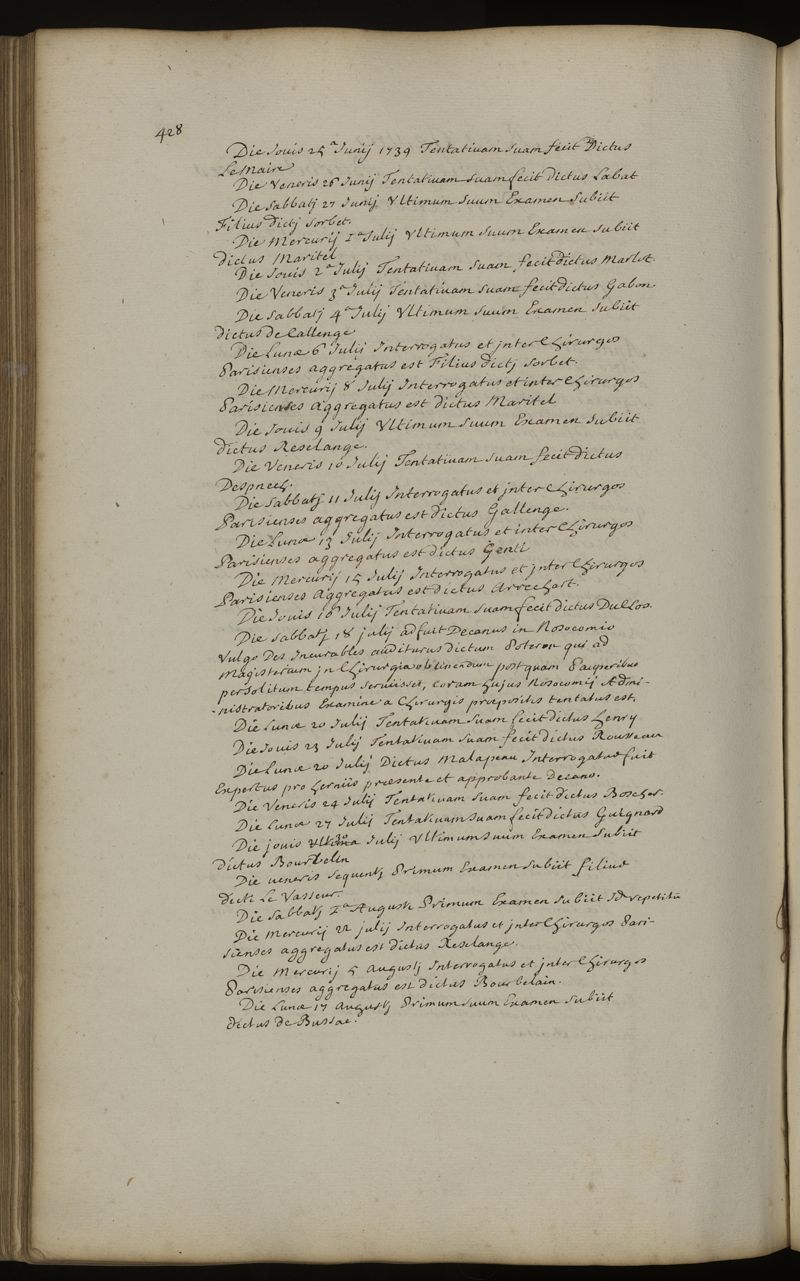 428
Die Jovis 25a Junij 1739 Tentativam suam fecit Dictus
Le Maire
Die Veneris 26 Junij Tentativam suam fecit dictus Labat
Die Sabbatj 27 Junij Vltimum suum Examen Subiit
Filius dictj Sorbet.
Die Mercurij 1a Julij Vltimum suum Examen subiit
dictus Maritel
Die Jovis 2a Julij Tentativam suam fecit dictus Marlot.
Die Veneris 3a Julij Tentativam suam fecit dictus Gabon.
Die Sabbatj 4a Julij Vltimum suum Examen subiit
dictus de Callenge
Die Lunæ 6 Julij Interrogatus et jnter Chirurgos
Parisienses aggregatus est Filius dictj Sorbet.
Die Mercurij 8 Julij Interrogatus et inter Chirurgos
Parisienses aggregatus est dictus Maritel
Die Jovis 9 Julij Vltimum suum Examen subiit
dictus Reselange.
Die Veneris 10 Julij Tentativam suam fecit dictus
Despnech.
Die Sabbatj 11 Julij Interrogatus et jnter Chirurgos
Parisienses aggregatus est dictus Gallenge.
Die Lunæ 13 Julij Interrogatus et inter Chirurgos
Parisienses aggregatus est dictus Genti
Die Mercurij 15 Julij Interrogatus et jnter Chirurgos
Parisienses aggregatus est dictus Arrechart.
Die Jovis 16 Julij Tentativam suam fecit dictus Duclos.
Die Sabbatj 18 julij adfuit Decanus in Nosocomio
Vulgo Des Incurables auditurus dictum Poteron qui ad
Magisterium jn Chirurgia obtinendum postquam Pauperibus
persolitum tempus servisset, coram hujus Nosocomij Admi-
-nistratoribus Examine a Chirurgis præpositis tentatus est.
Die Lunæ 20 Julij Tentativam suam fecit dictus henry
Die Jovis 23 Julij Tentativam suam fecit dictus Rousseau
Die Lunæ 20 Julij Dictus Malapeau Interrogatus fuit
Expertus pro herniis præsente et approbante Decano.
Die Veneris 24 Julij Tentativam suam fecit dictus Boscher.
Die Lunæ 27 Julij Tentativam suam fecit dictus Guignard
Die jovis 30 Julij Vltimum suum Examen Subiit
dictus Bourbelin
Die veneris sequentj Primum Examen subiit filius
dicti Le Vasseur.
Die Sabbatj 1a Augusti Primum Examen subiit Id repetitu
Die Mercurij 22 julij Interrogatus et jnter Chirurgos Pari-
sienses aggregatus est dictus Reselange.
Die Mercurij 5 Augustj Interrogatus et jnter Chirurgos
Parisienses aggregatus est dictus Bourbelain.
Die Lunæ 17 Augustj Primum suum Examen subiit
dictus de Bussac.